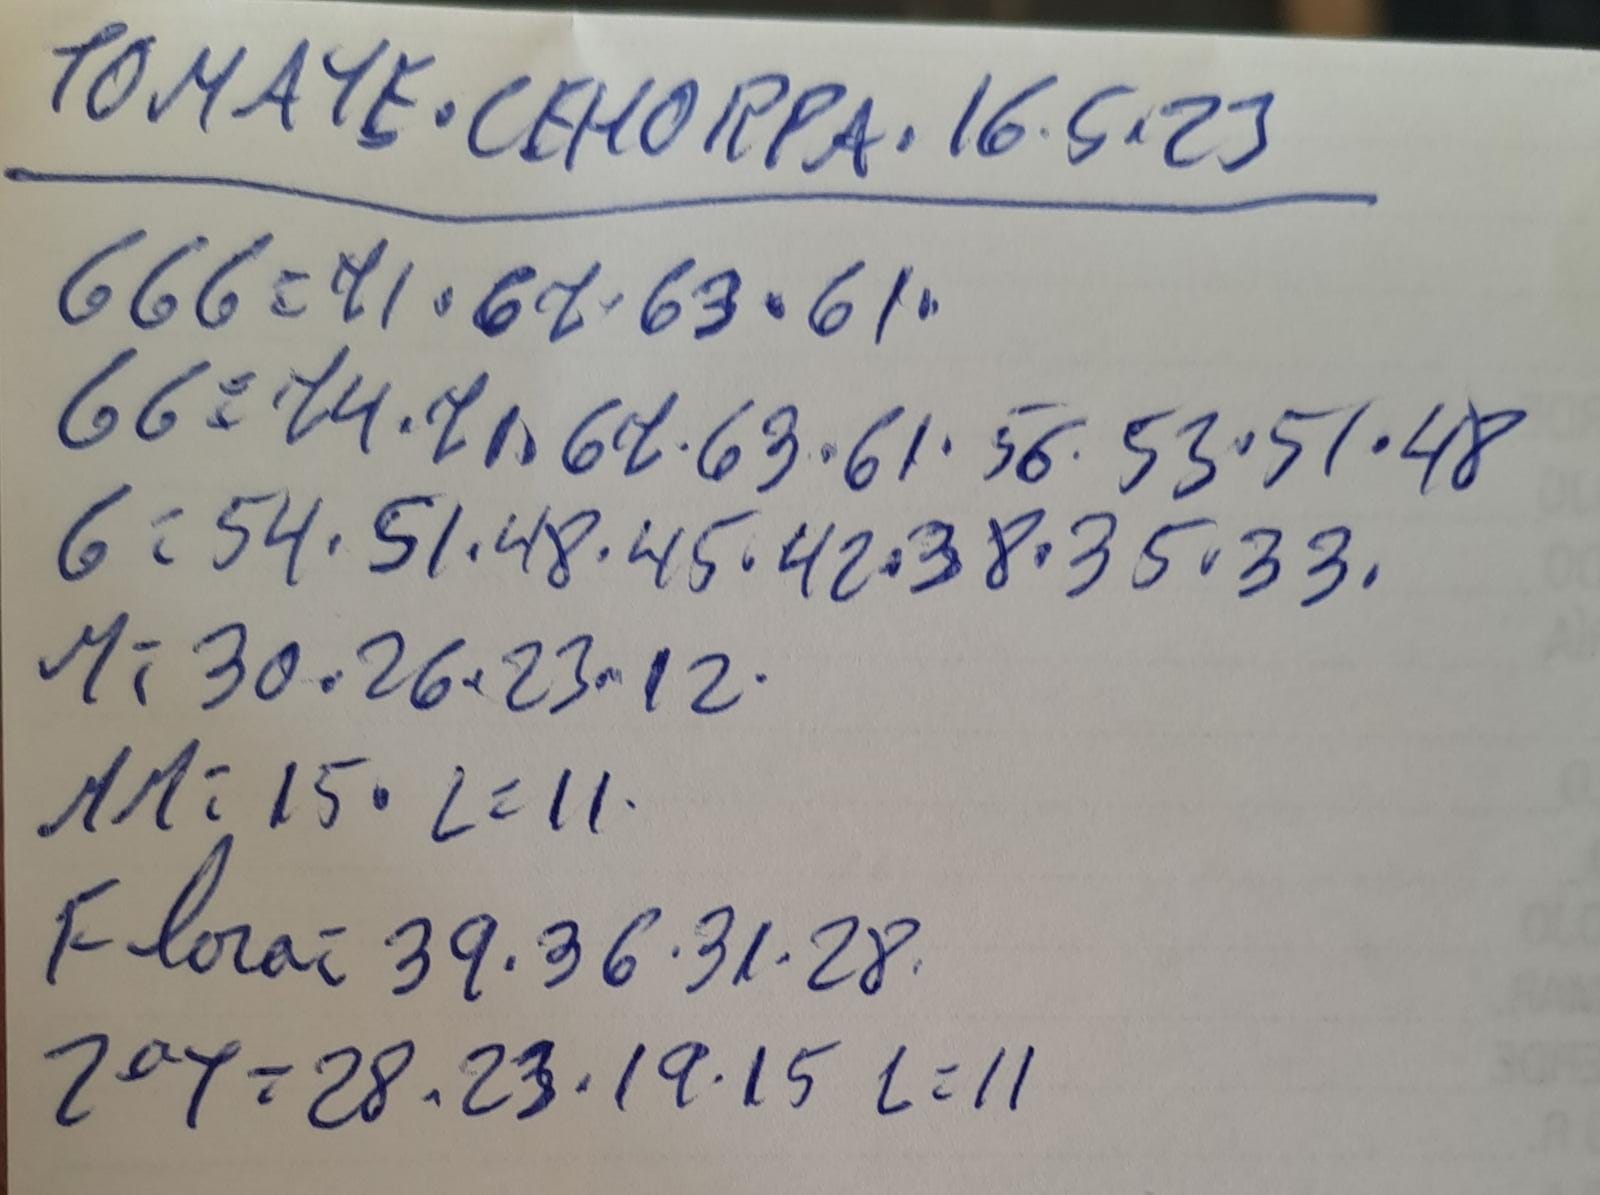 TOMATE.CEHORPA.16.5.23
666=71.67.63.61.
66=74.71.67.63.61.56.53.51.48
6=54.51.48.45.42.38.35.33.
M=30.26.23.12.
MM=15. L=11.
Flora=39.36.31.28.
2ªT=28.23.19.15 L=11